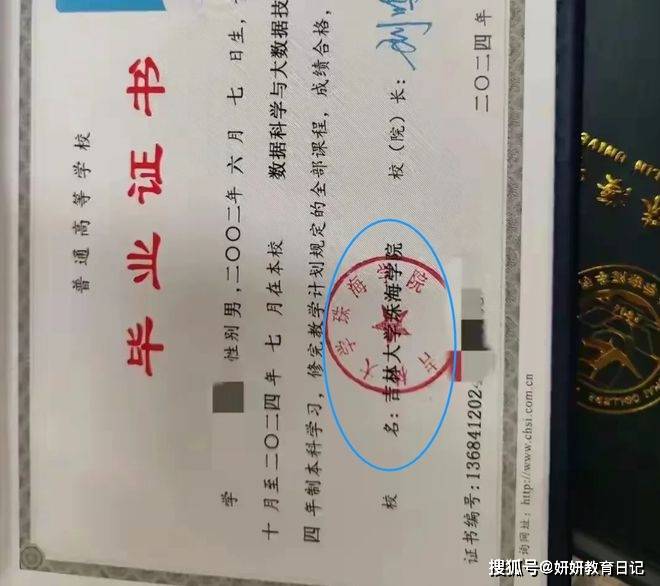 普通高等学校
毕业证书
学
性别男，二〇〇二年六月七日生，
十月至二〇二四年七月在本校
数据科学与大数据技
四年制本科学习，修完教学计划规定的全部课程，成绩合格，
校名：吉林大学珠海学院
校（院）长：
证书编号：1368412024
二〇二四年
询网址：http://www.chsi.com.cn
搜狐号@妍妍教育日记